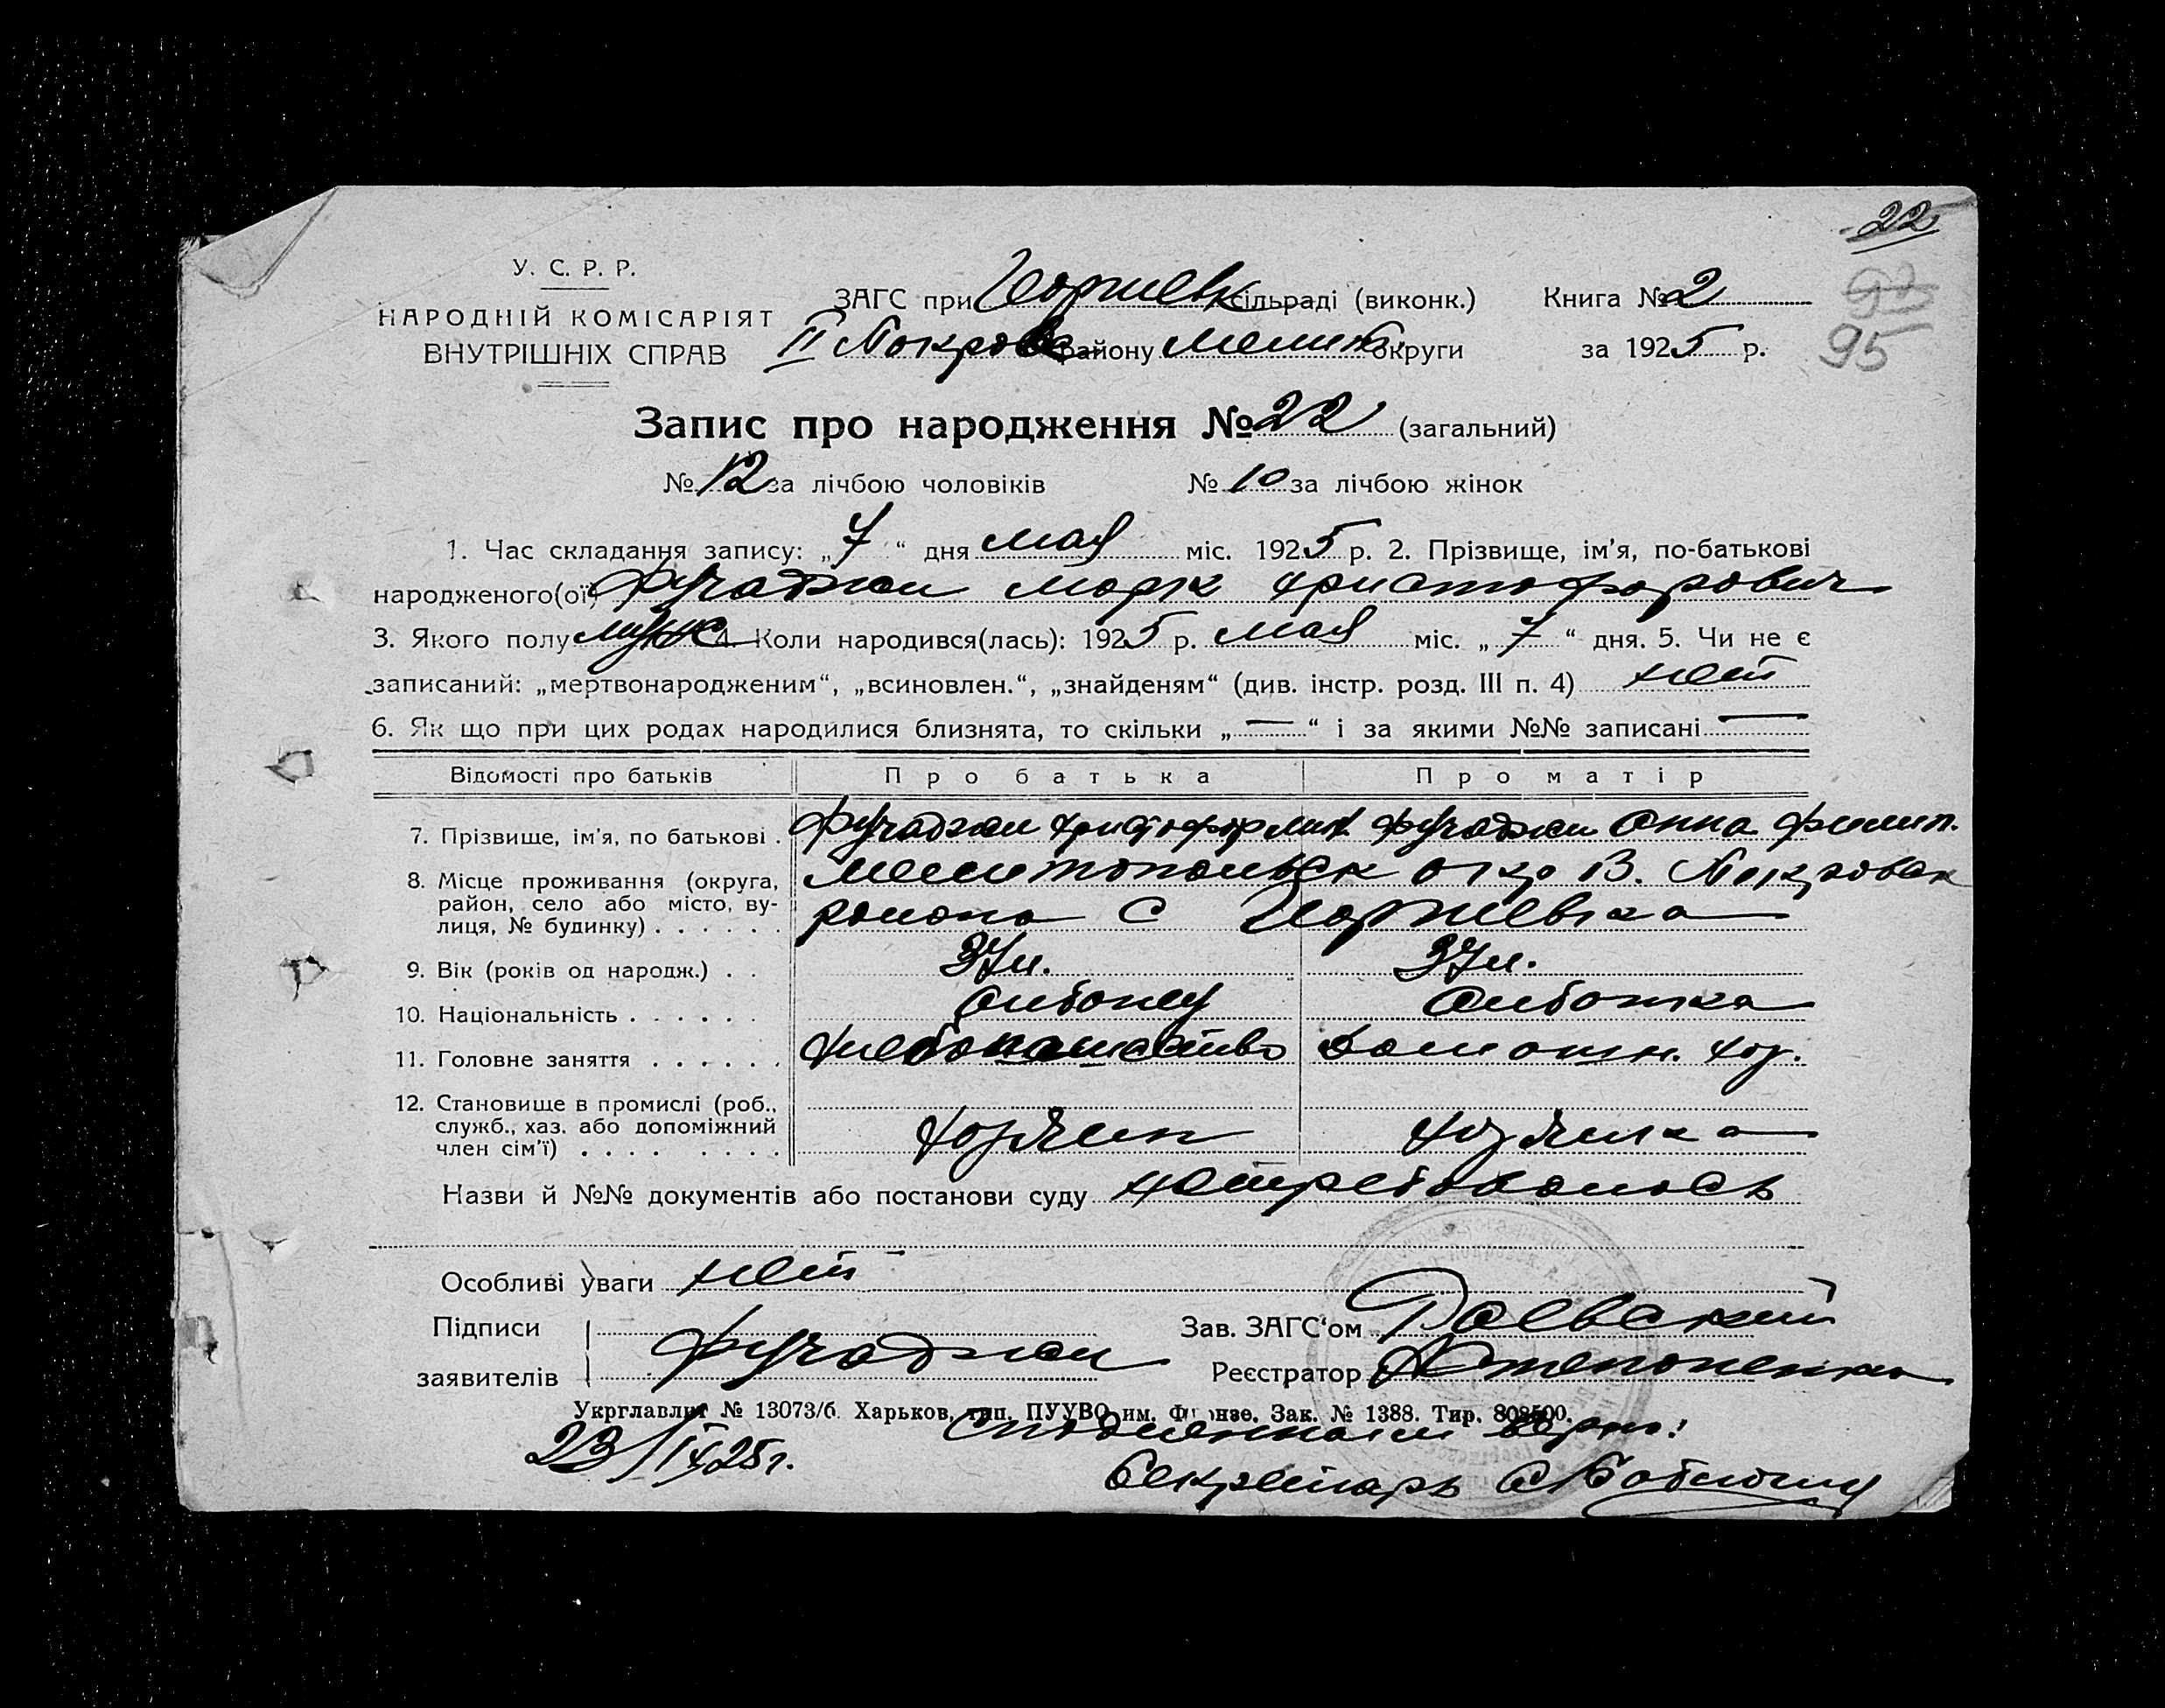 22
У. С. Р. Р.
НАРОДНІЙ КОМІСАРІЯТ
ВНУТРІШНІХ СПРАВ
ЗАГС при Георгиевк сільраді (виконк.)
ІІ Покровс району Мелит. округи
Книга № 2
за 1925 р.
95
Запис про народження № 22 (загальний)
№ 12 за лічбою чоловіків № 10 за лічбою жінок
1. Час складання запису: „7“ дня мая міс. 1925 р. 2. Прізвище, ім'я, по-батькові
народженого(ої) Фучаджи Марк Христофорович
3. Якого полу муж 4. Коли народився(лась): 1925 р. мая міс. „7“ дня. 5. Чи не є
записаний: „мертвонародженим“, „всиновлен.“, „знайденям“ (див. інстр. розд. III п. 4) нет
6. Як що при цих родах народилися близнята, то скільки „—“ і за якими №№ записані —
Відомості про батьків Про батька Про матір
7. Прізвище, ім'я, по батькові . Фучаджи Христофор Фучаджи Анна Филип.
8. Місце проживання (округа, район, село або місто, вулиця, № будинку) . . . . . . Мелитопольск окр В. Покровск
района с Георгиевка
9. Вік (років од народж.) . . 37 л. 37 л.
10. Національність . . . . . . Албанец Албанка
11. Головне заняття . . . . . . Хлебопашество Домашн. хоз.
12. Становище в промислі (роб., служб., хаз. або допоміжний член сім'ї) . . . . . . . . Хозяин Хозяйка
Назви й №№ документів або постанови суду нетребовалось
Особливі уваги нет
Підписи
заявителів Фучаджи
Зав. ЗАГС‘ом Раевский
Реєстратор Степаненко
Укрглавлит № 13073/б. Харьков, тип. ПУУВО им. Фрунзе. Зак. № 1388. Тир. 808500.
С подлинным верно!
23/IX 25 г.
Секретарь